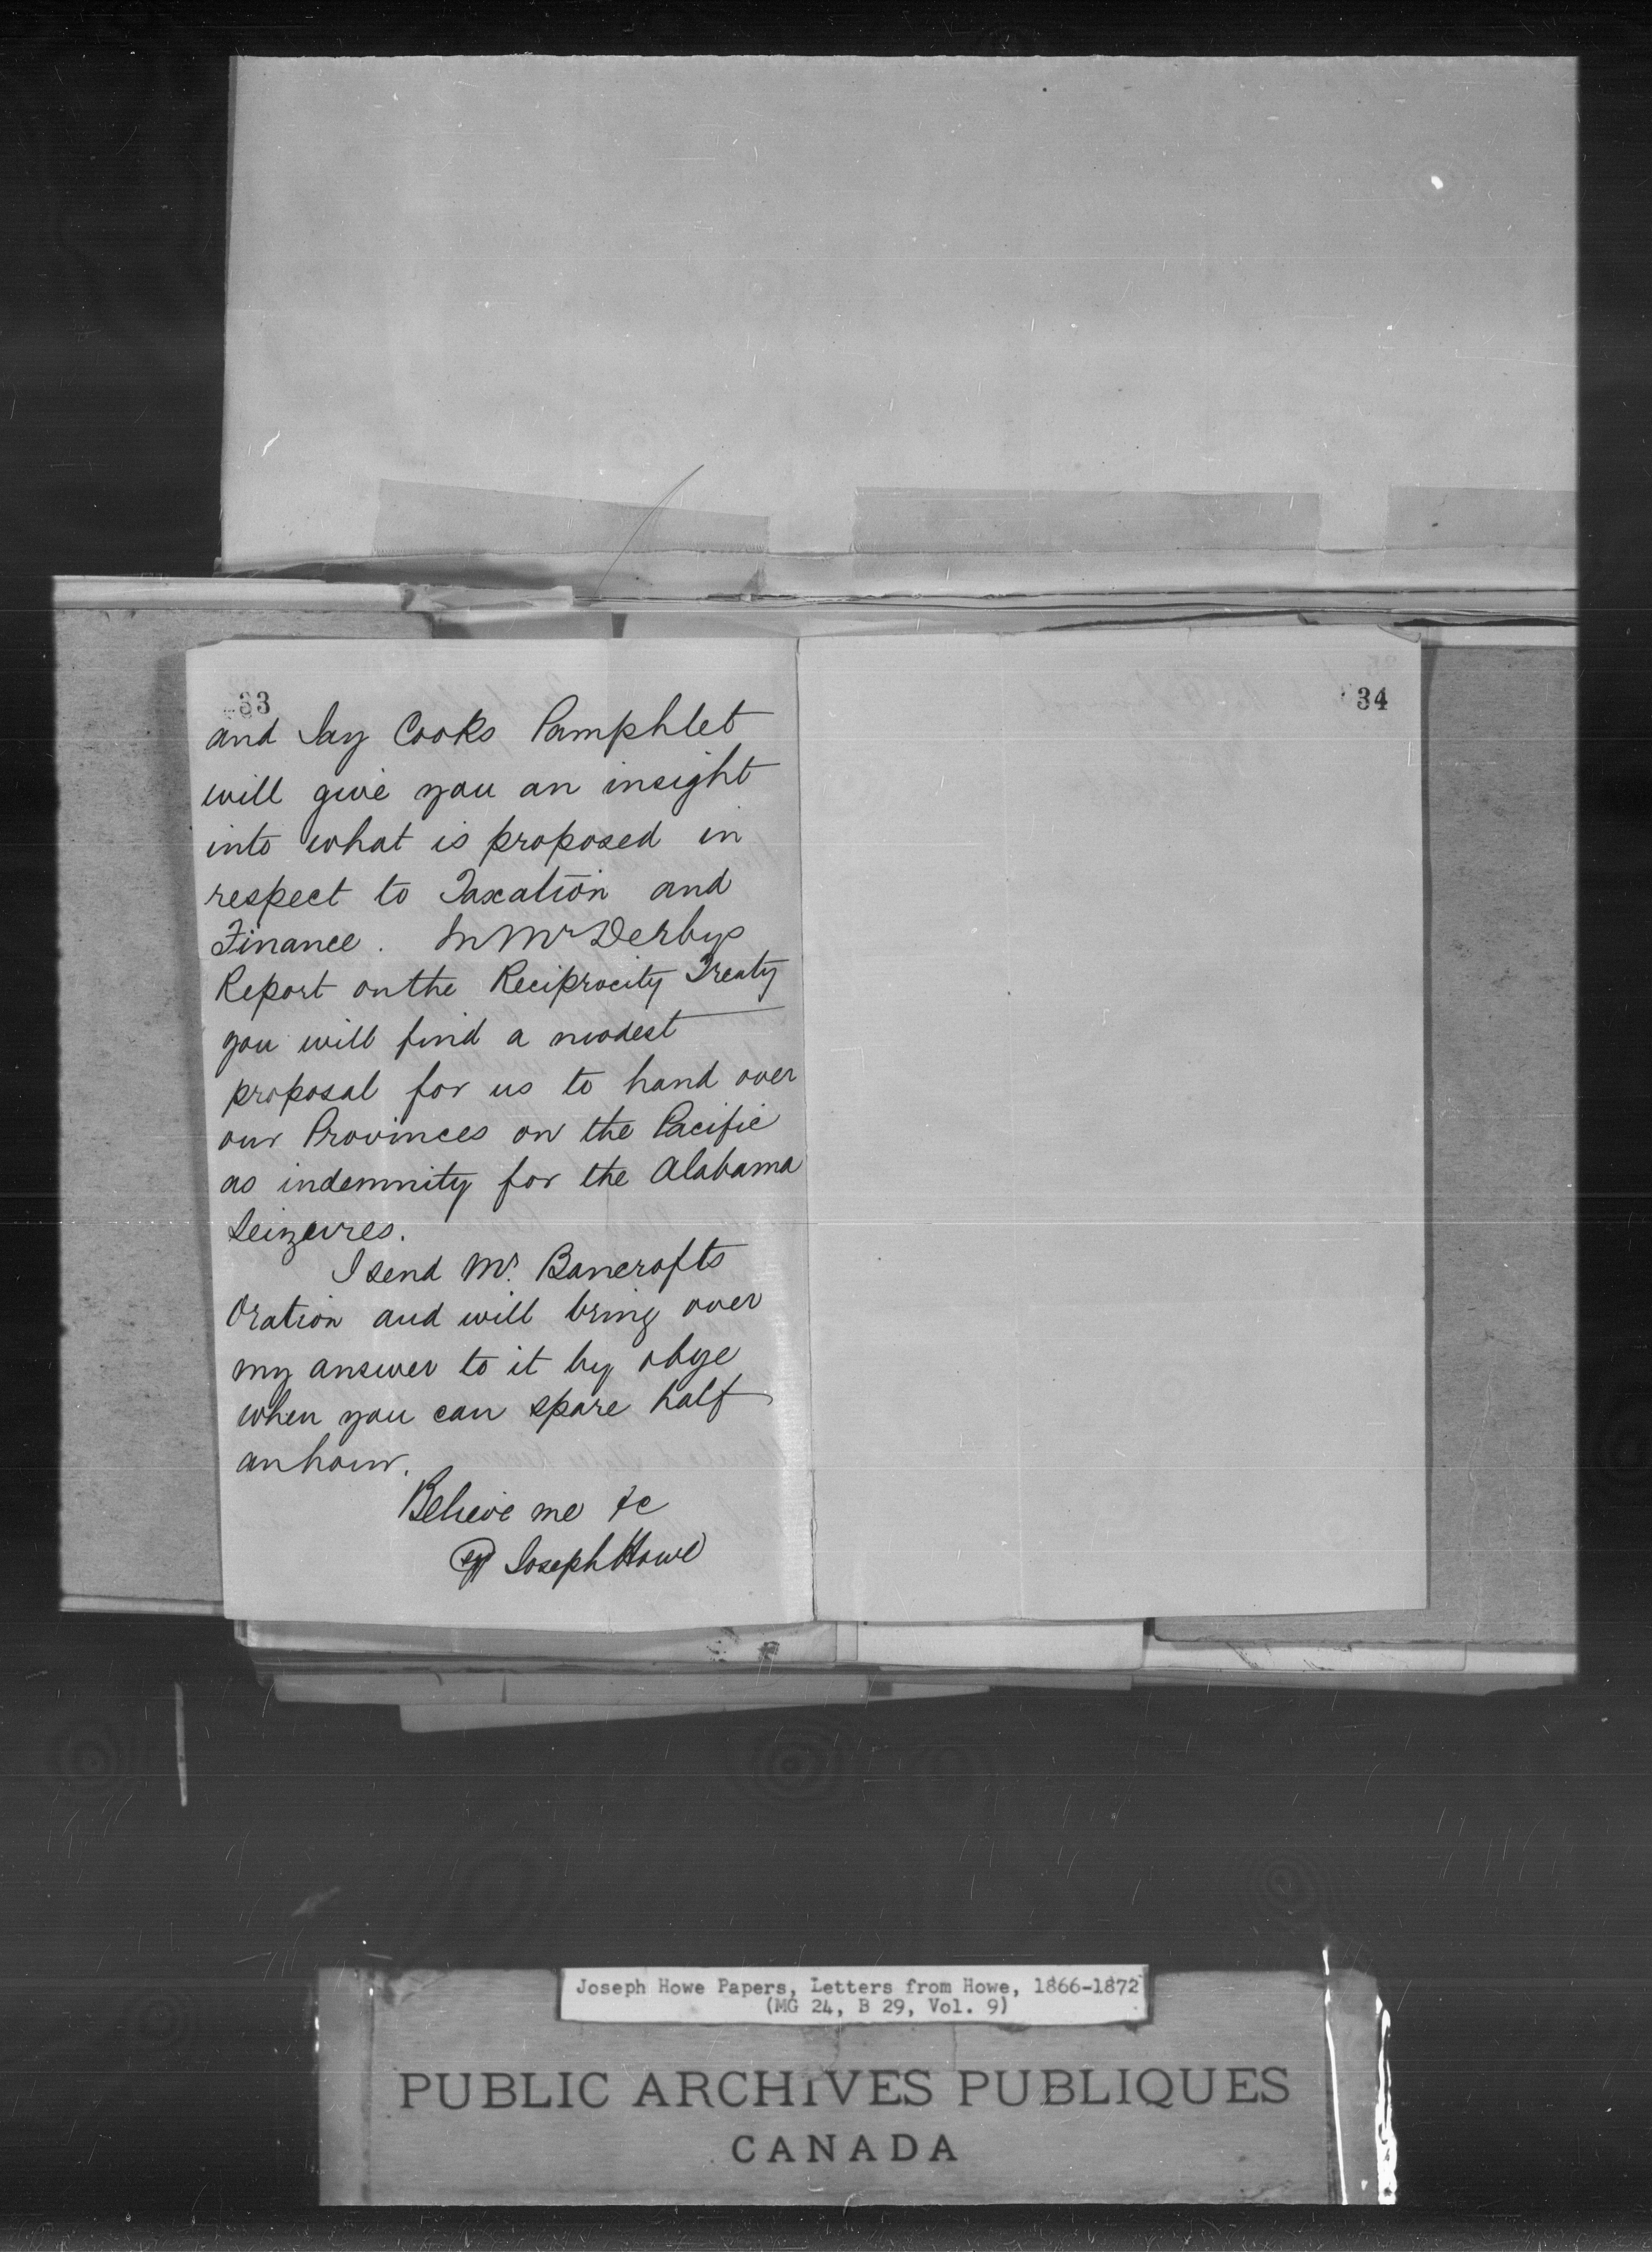 33
and Jay Cooks Pamphlet
will give you an insight
into what is proposed in
respect to Taxation and
Finance. In Mr Derbys
Report on the Reciprocity Treaty
you will find a modest
proposal for us to hand over
our Provinces on the Pacific
as indemnity for the Alabama
Seizures.
I send Mr. Bancrofts
Oration and will bring over
my answer to it by
when you can spare half
an hour.
Believe me &c
Joseph Howe
34
Joseph Howe Papers, Letters from Howe, 1866-1872
(MG 24, B 29, Vol. 9)
PUBLIC ARCHIVES PUBLIQUES
CANADA